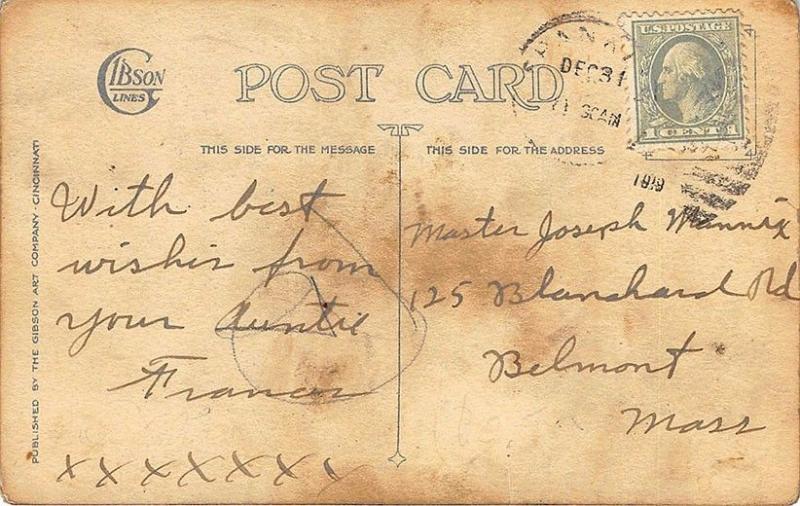 GIBSON
LINES
POST CARD
DEC 31
1919
U.S. POSTAGE
1 CENT 1
THIS SIDE FOR THE MESSAGE
THIS SIDE FOR THE ADDRESS
PUBLISHED BY THE GIBSON ART COMPANY - CINCINNATI
With best
wishes from
your Auntie
Frances
x x x x x x x
Master Joseph Mannix
125 Blanchard Rd
Belmont
Mass